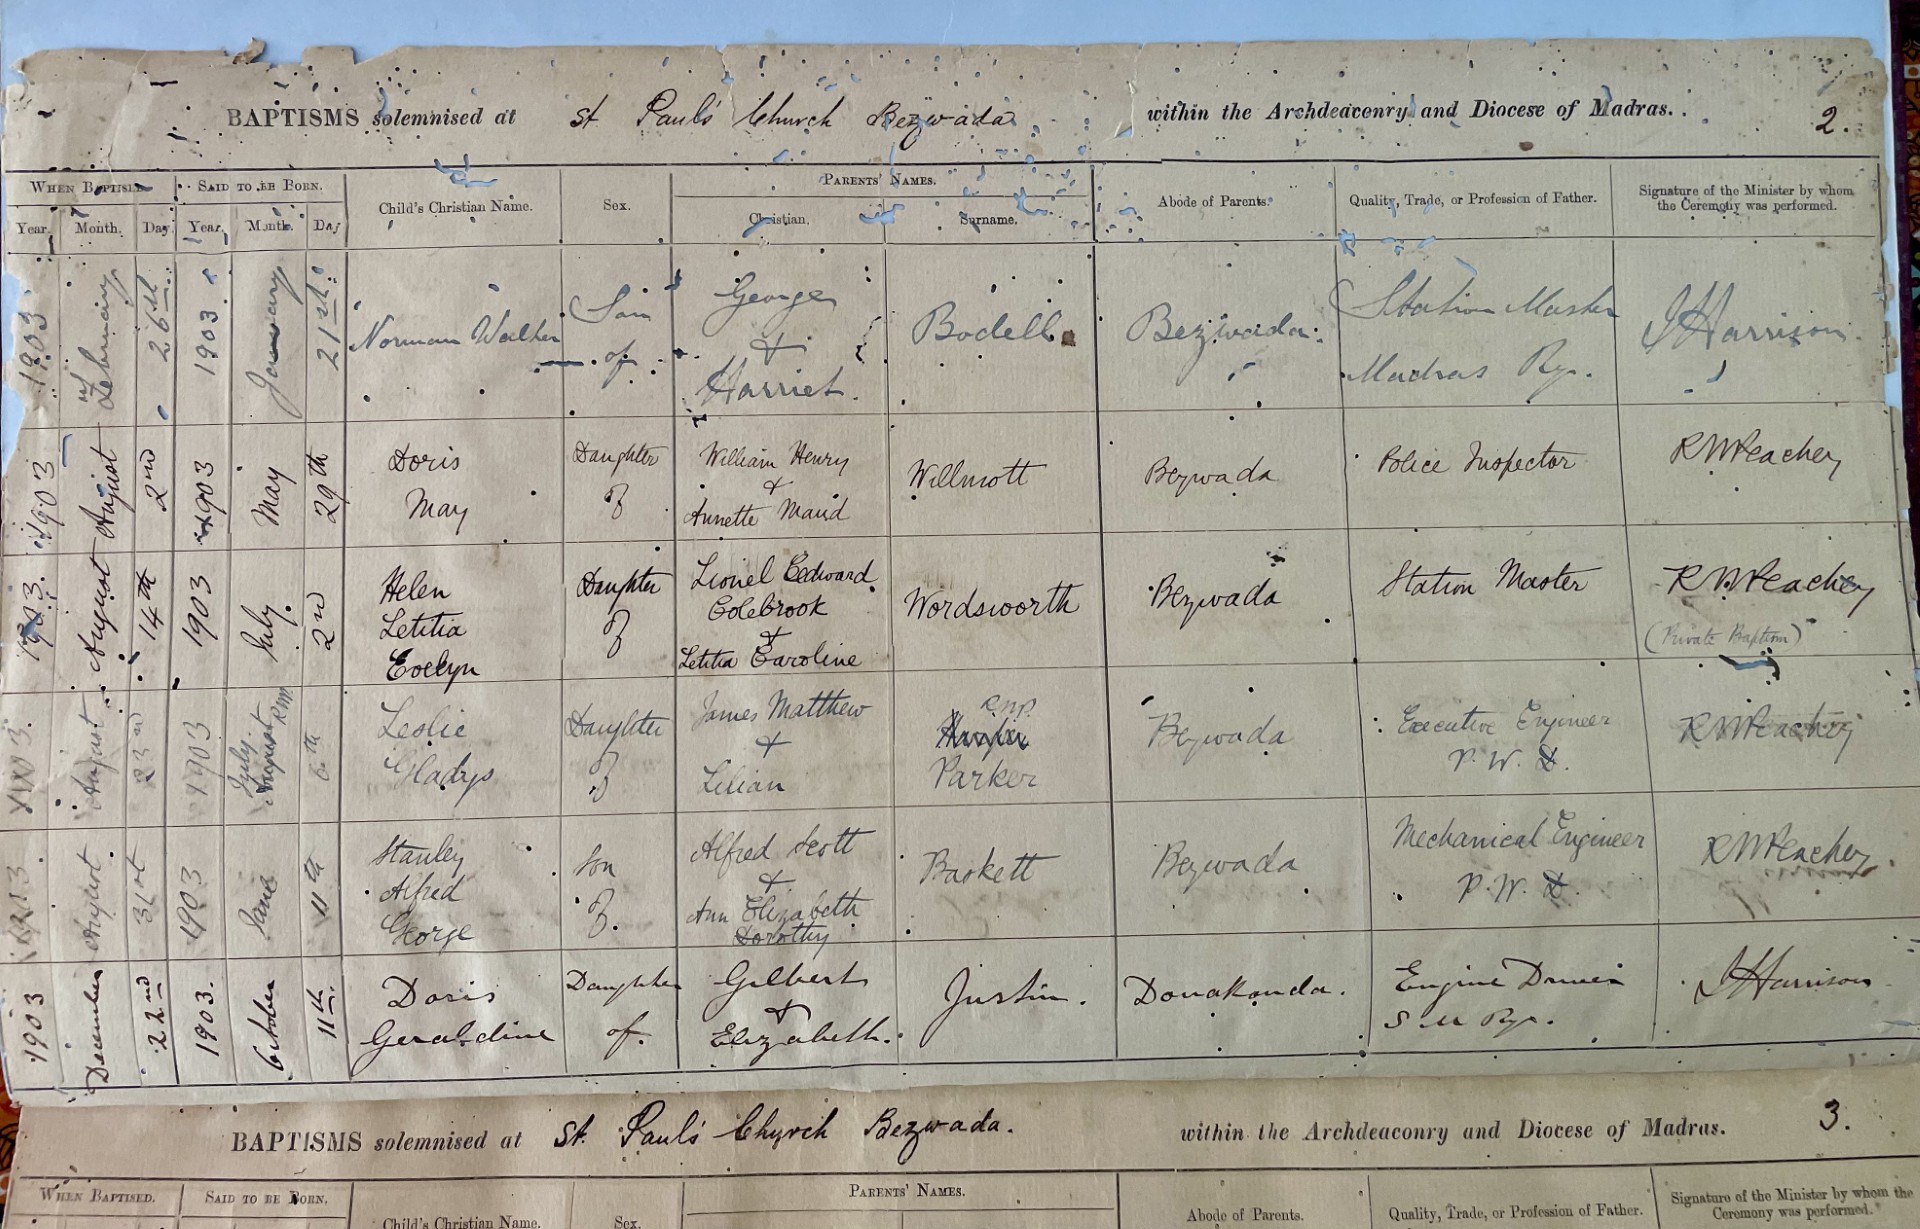 BAPTISMS solemnised at St Paul's Church Bezwada within the Archdeaconry and Diocese of Madras. 2.
WHEN BAPTISED. SAID TO BE BORN. Child's Christian Name. Sex. PARENTS' NAMES. Abode of Parents. Quality, Trade, or Profession of Father. Signature of the Minister by whom
the Ceremony was performed.
Year. Month. Day. Year. Month. Day Christian. Surname.
1903 February 26th 1903 January 21st Norman Walker Son
of George
&
Harriet. Bodell Bezwada. Station Master
Madras Ry. J Harrison.
1903 August 2nd 1903 May 29th Doris
May Daughter
of William Henry
&
Annette Maud Willmott Bezwada Police Inspector R W Peachey
1903. August 14th 1903 July. 2nd Helen
Letitia
Evelyn Daughter
of Lionel Edward
Colebrook
&
Letitia Caroline Wordsworth Bezwada Station Master R W Peachey
(Private Baptism)
1903. August 23rd 1903 July August RWP 6th Leslie
Gladys Daughter
of James Matthew
&
Lilian RWP
Parker Bezwada Executive Engineer
P. W. D. R W Peachey
1903. August 31st 1903 June 11th Stanley
Alfred
George Son
of. Alfred Scott
&
Ann Elizabeth
Dorothy Baskett Bezwada Mechanical Engineer
P. W. D. R W Peachey.
1903 December 22nd 1903. October 11th. Doris
Geraldine Daughter
of. Gilbert
&
Elizabeth. Justin. Donakonda. Engine Driver
S M Ry. J Harrison
BAPTISMS solemnised at St. Paul's Church Bezwada. within the Archdeaconry and Diocese of Madras. 3.
WHEN BAPTISED. SAID TO BE BORN. Child's Christian Name. Sex. PARENTS' NAMES. Abode of Parents. Quality, Trade, or Profession of Father. Signature of the Minister by whom the
Ceremony was performed.